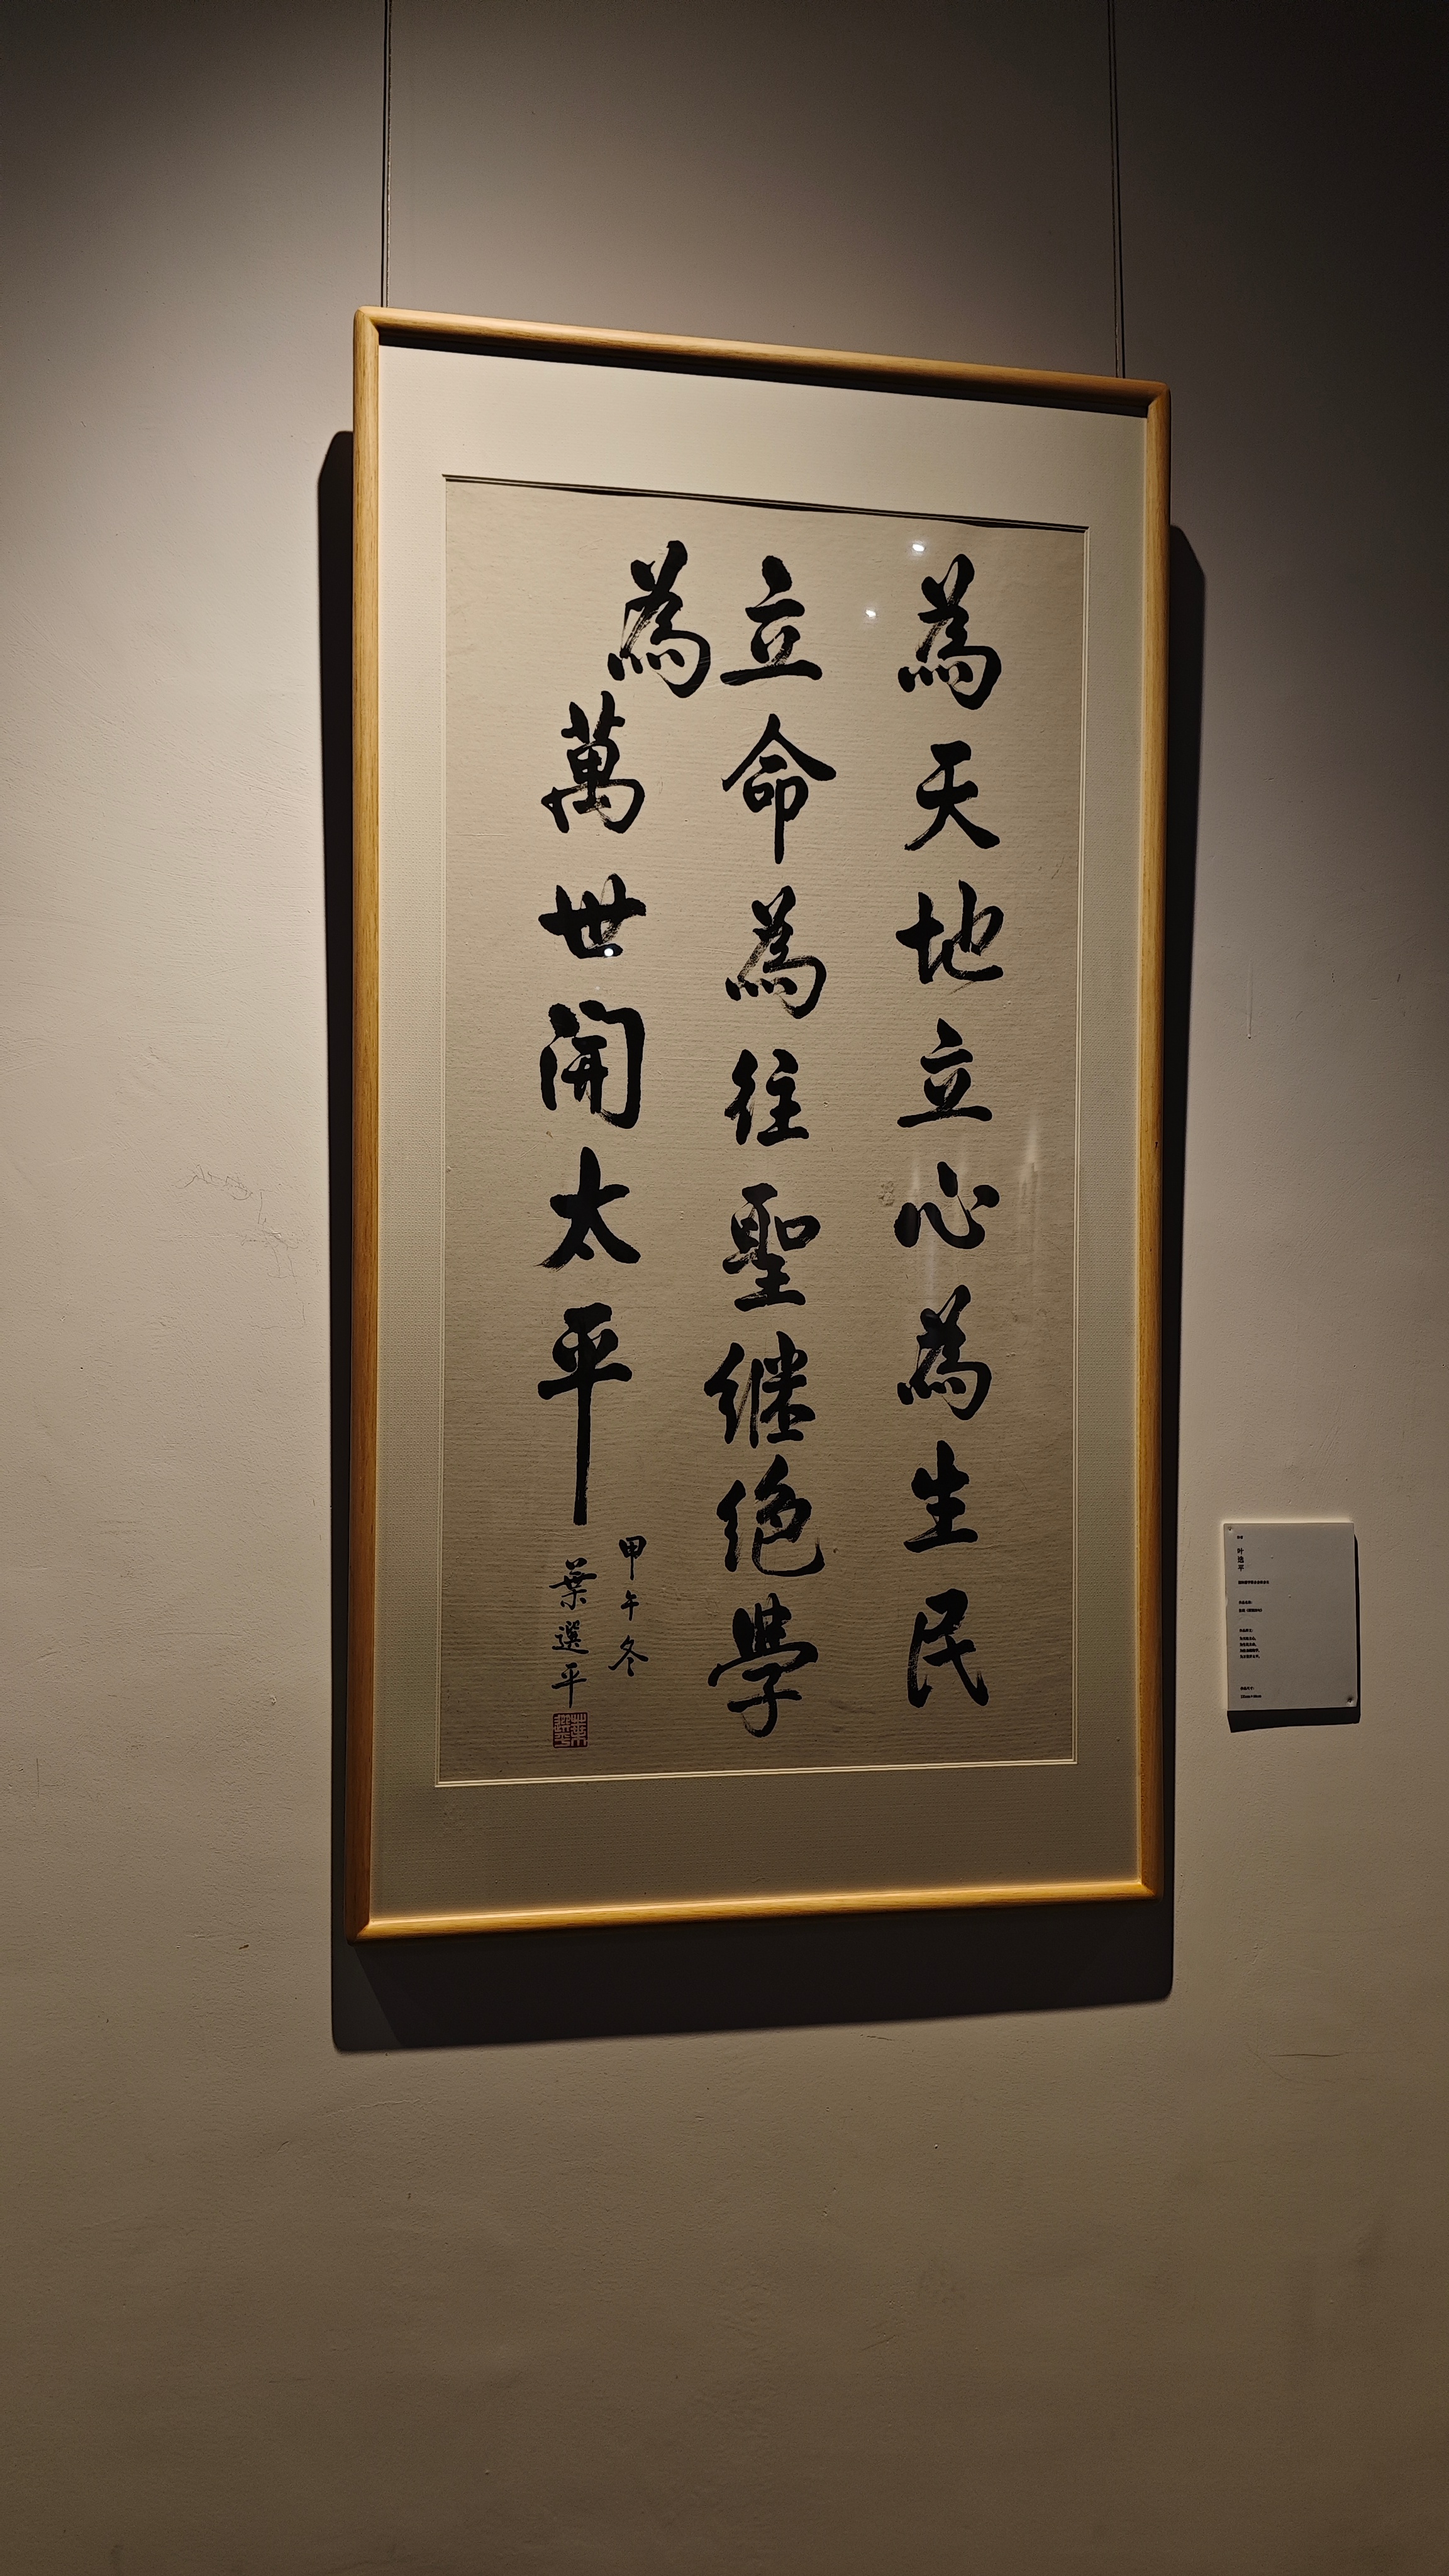 為天地立心為生民
立命為往聖继绝學
為萬世開太平
甲午冬
葉選平
叶选平